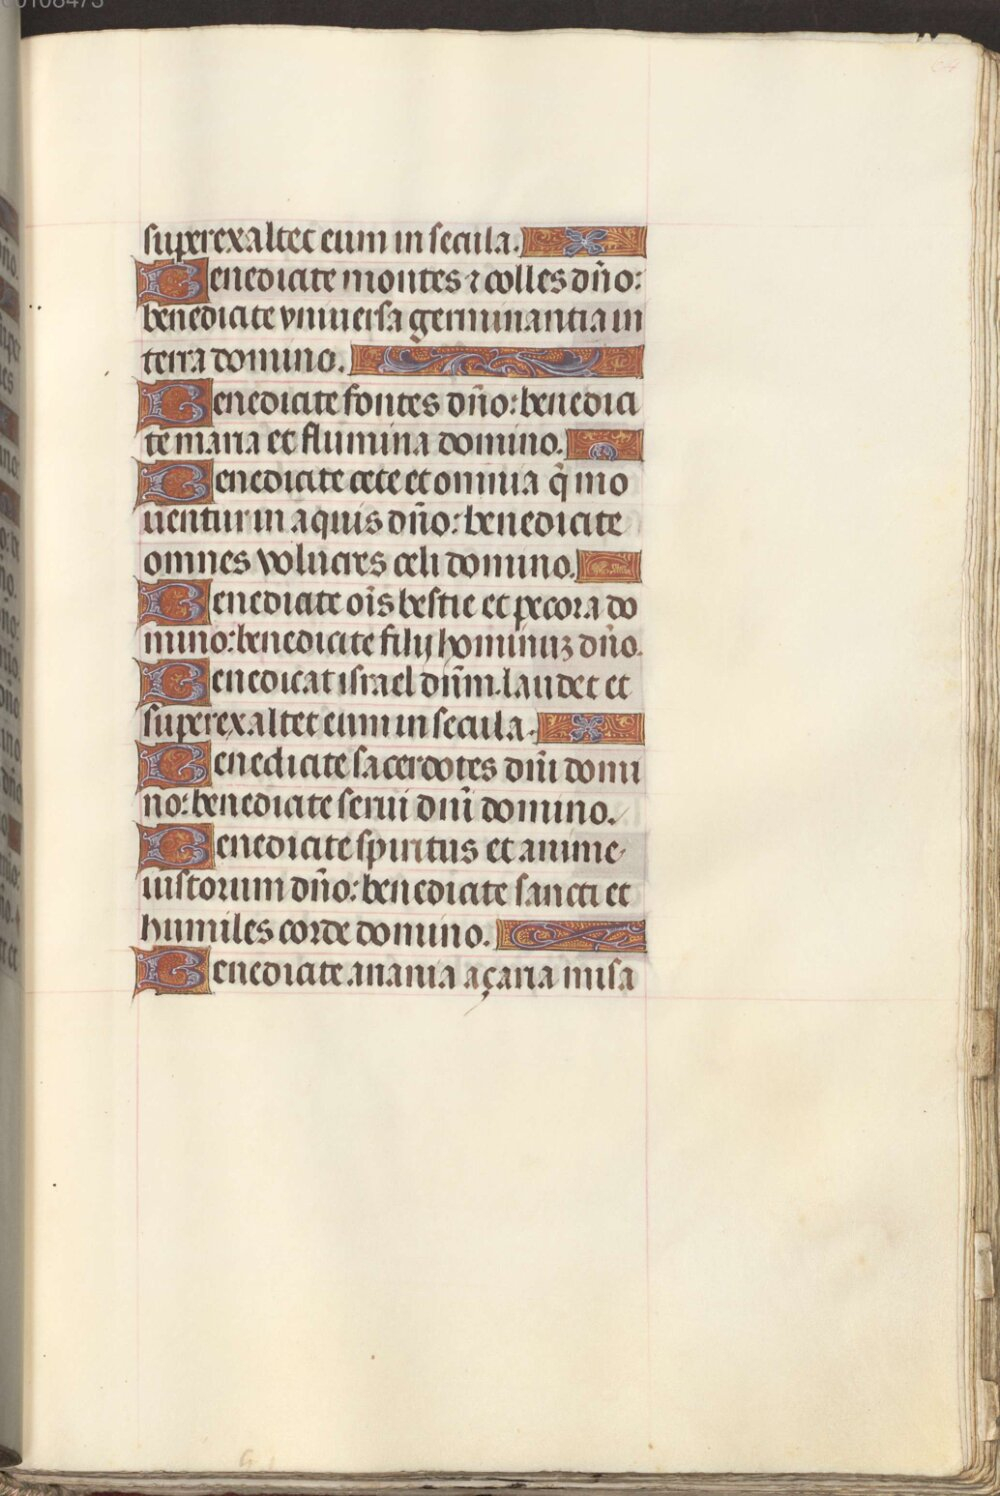 64
superexaltet eum in secula.
Benedicite montes ⁊ colles dño:
benedicite vniuersa germinantia in
terra domino.
Benedicite fontes dño: benedici
te maria et flumina domino.
Benedicite cete et omnia q̃ mo
uentur in aquis dño: benedicite
omnes volucres celi domino.
Benedicite oı̃s bestie et pecora do
mino: benedicite filij hominuꝫ dño.
Benedicat israel dñm. laudet et
superexaltet eum in secula.
Benedicite sacerdotes dñi domi
no: benedicite serui dñi domino.
Benedicite spiritus et anime
iustorum dño: benedicite sancti et
humiles corde domino.
Benedicite anania açaria misa